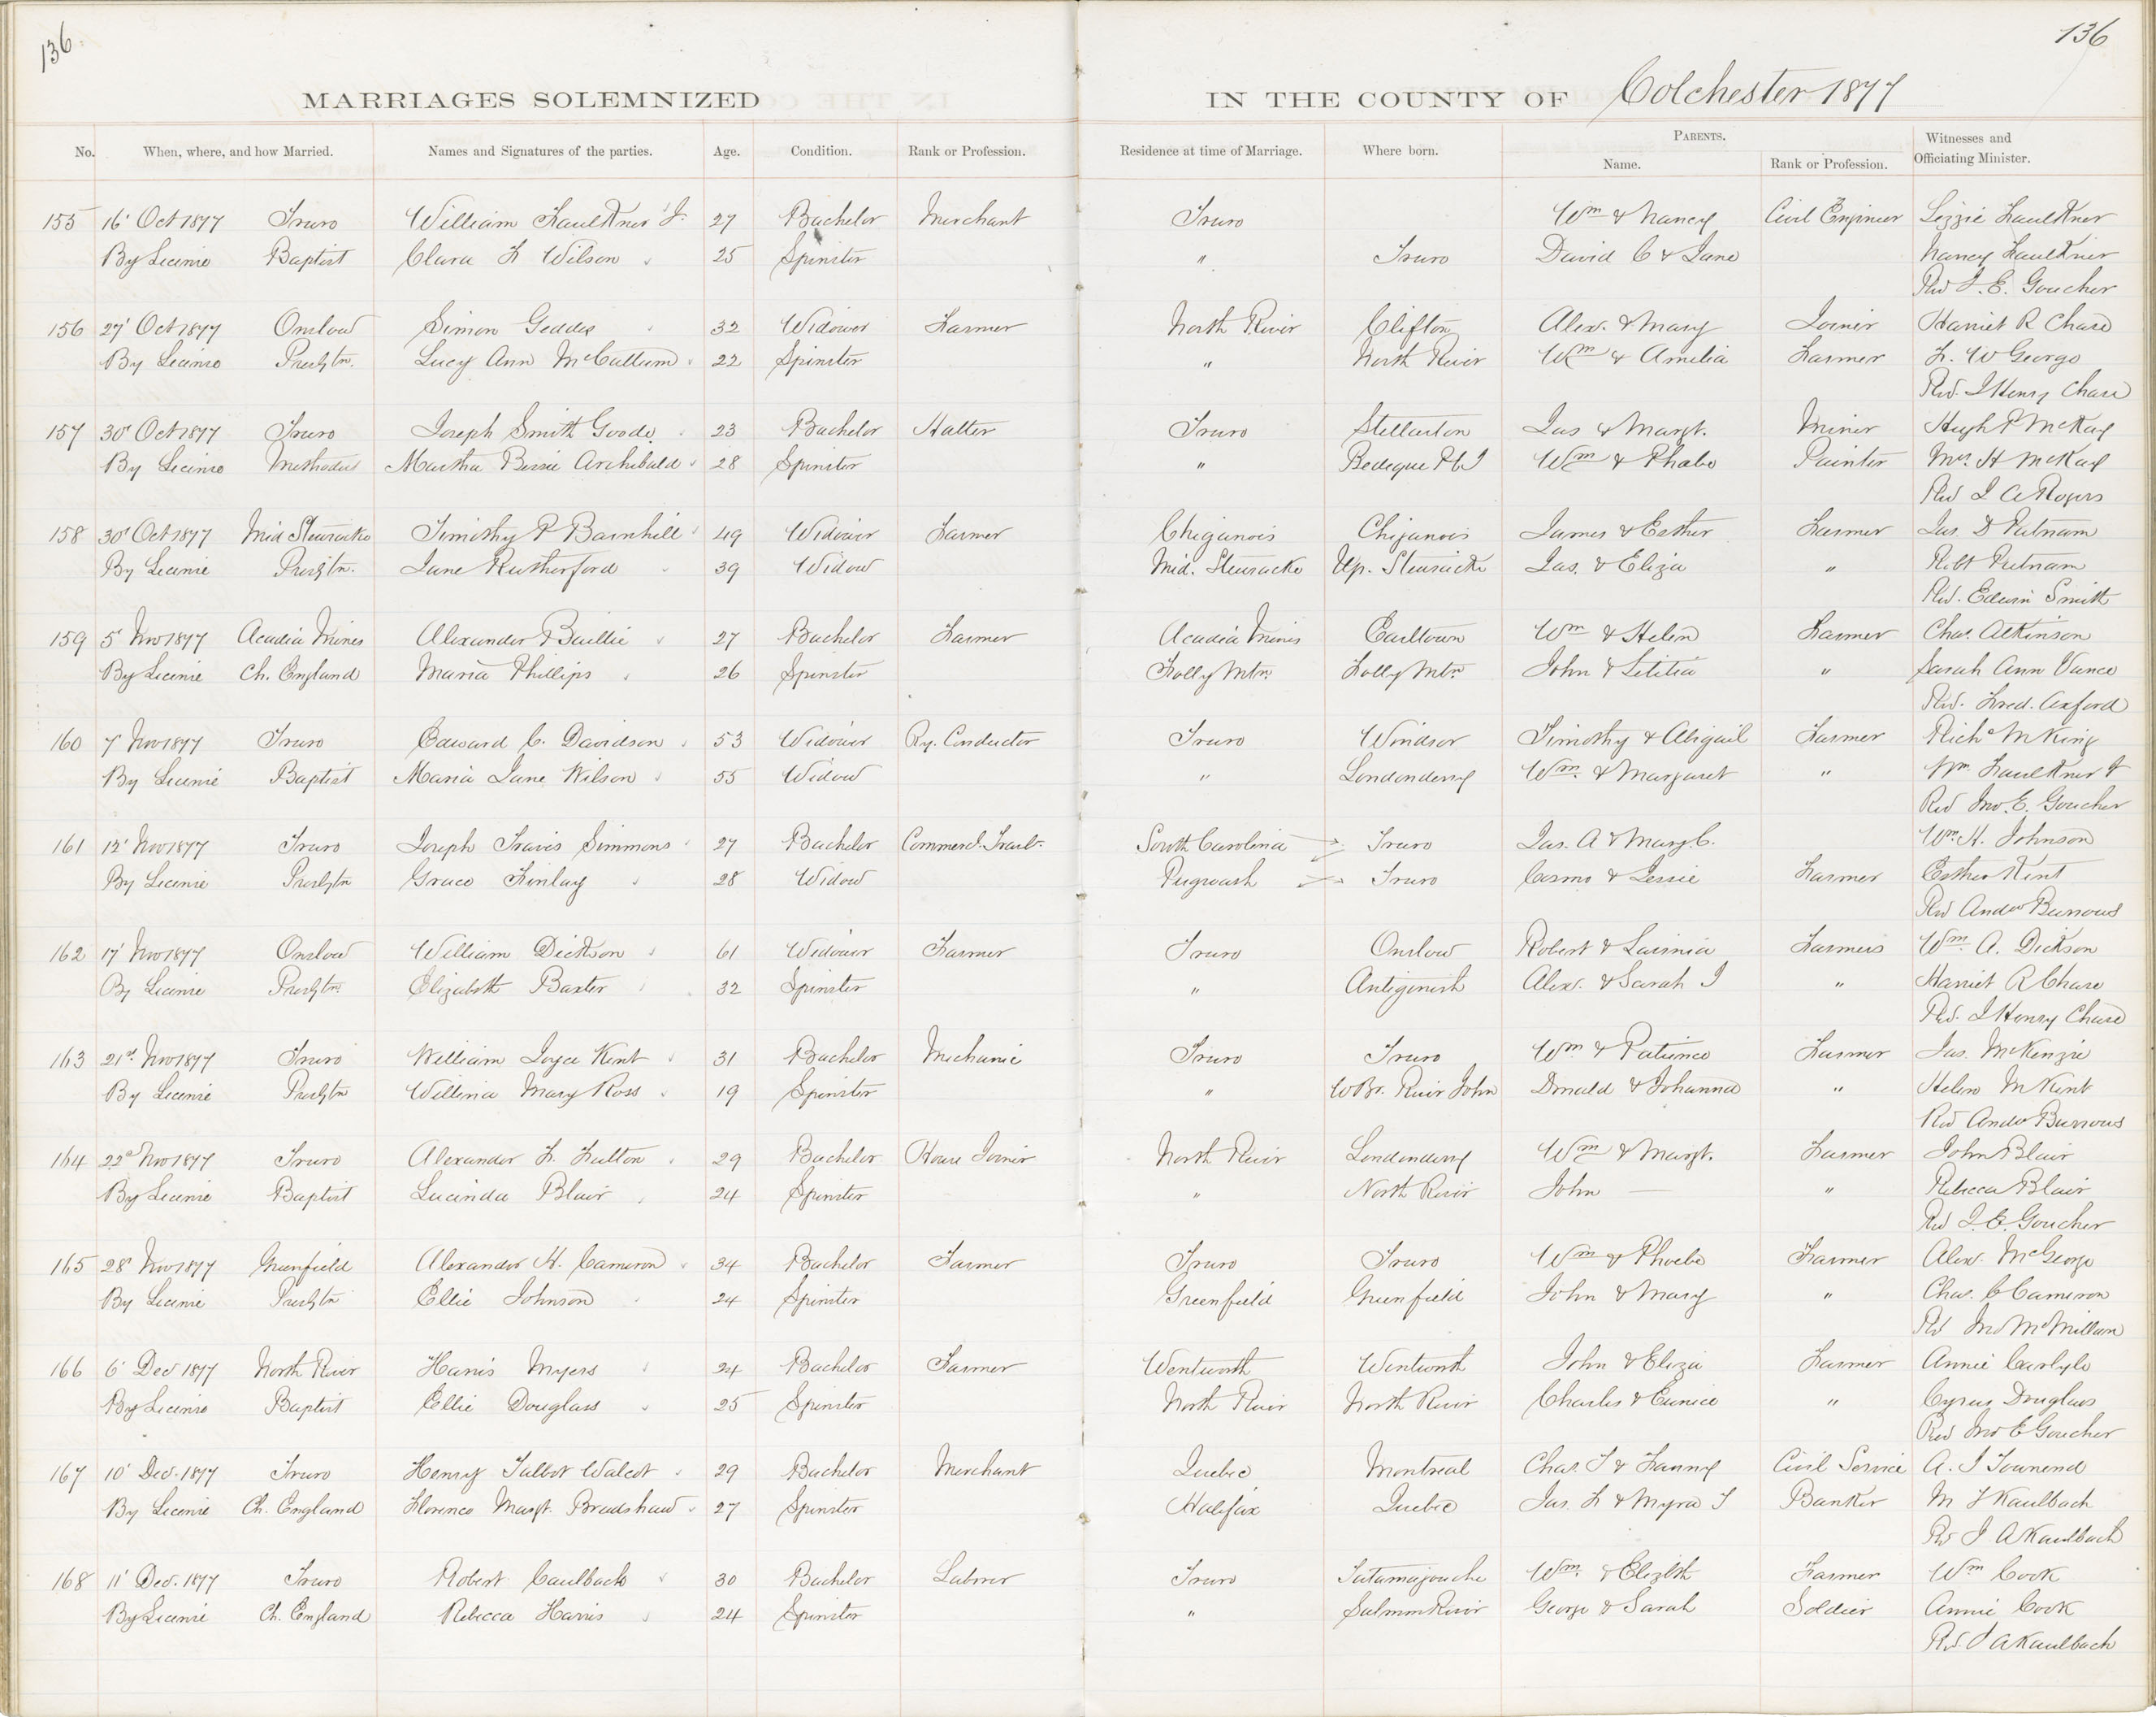 136
136
MARRIAGES SOLEMNIZED IN THE COUNTY OF Colchester 1877
No. When, where, and how Married. Names and Signatures of the parties. Age. Condition. Rank or Profession. Residence at time of Marriage. Where born. PARENTS. Name. Rank or Profession. Witnesses and Officiating Minister.
155 16' Oct 1877 Truro William Faulkner Jr. 27 Bachelor Merchant Truro Wm & Nancy Civil Engineer Lizzie Faulkner
By License Baptist Clara F Wilson 25 Spinster " Truro David C & Jane Nancy Faulkner
Rev J. E. Goucher
156 27' Oct 1877 Onslow Simon Geddes 32 Widower Farmer North River Clifton Alex. & Mary Joiner Harriet R Chase
By License Presbytn. Lucy Ann McCallum 22 Spinster " North River Wm & Amelia Farmer F. W George
Rev. J Henry Chase
157 30' Oct 1877 Truro Joseph Smith Goode 23 Bachelor Hatter Truro Stellarton Jas & Margt. Miner Hugh P McKay
By License Methodist Martha Bessie Archibald 28 Spinster " Bedeque P E I Wm & Phebe Painter Mrs. H McKay
Rev J A Rogers
158 30' Oct 1877 Mid Stewiacke Timothy P Barnhill 49 Widower Farmer Chiganois Chiganois James & Esther Farmer Jas. D Putnam
By License Presbytn. Jane Rutherford 39 Widow Mid. Stewiacke Up. Stewiacke Jas. & Eliza " Robt Putnam
Rev. Edwin Smith
159 5' Nov 1877 Acadia Mines Alexander Baillie 27 Bachelor Farmer Acadia Mines Earltown Wm & Helen Farmer Chas. Atkinson
By License Ch. England Maria Phillips 26 Spinster Folly Mtn. Folly Mtn. John & Letitia " Sarah Ann Vance
Rev. Fred. Axford
160 7' Nov 1877 Truro Edward C. Davidson 53 Widower Ry. Conductor Truro Windsor Timothy & Abigail Farmer Richd M King
By License Baptist Maria Jane Wilson 55 Widow " Londonderry Wm. & Margaret " Wm. Faulkner Jr
Rev Jno. E. Goucher
161 12' Nov 1877 Truro Joseph Travis Simmons 27 Bachelor Commercl. Travlr. South Carolina Truro Jas. A & Mary C. Wm. H. Johnson
By License Presbytn Grace Finlay 28 Widow Pugwash Truro Cosmo & Jessie Farmer Esther Kent
Rev Andw Burrows
162 17' Nov 1877 Onslow William Dickson 61 Widower Farmer Truro Onslow Robert & Lavinia Farmers Wm. A. Dickson
By License Presbytn. Elizabeth Baxter 32 Spinster " Antigonish Alex. & Sarah J " Harriet R Chase
Rev. J Henry Chase
163 21st. Nov 1877 Truro William Joyce Kent 31 Bachelor Mechanic Truro Truro Wm & Patience Farmer Jas. McKenzie
By License Presbytn Willina Mary Ross 19 Spinster " W Br. River John Donald & Johanna " Helen M Kent
Rev Andw Burrows
164 22d Nov 1877 Truro Alexander F. Fulton 29 Bachelor House Joiner North River Londonderry Wm & Margt. Farmer John Blair
By License Baptist Lucinda Blair 24 Spinster " North River John — " Rebecca Blair
Rev J. E. Goucher
165 28' Nov 1877 Greenfield Alexander H. Cameron 34 Bachelor Farmer Truro Truro Wm & Phoebe Farmer Alex. McGeorge
By License Presbytn Ellie Johnson 24 Spinster Greenfield Greenfield John & Mary " Chas. C Cameron
Rev Jno McMillan
166 6' Dec 1877 North River Harris Myers 24 Bachelor Farmer Wentworth Wentworth John & Eliza Farmer Annie Carlyle
By License Baptist Ellie Douglass 25 Spinster North River North River Charles & Eunice " Cyrus Douglass
Rev Jno E Goucher
167 10' Dec. 1877 Truro Henry Talbot Walcot 29 Bachelor Merchant Quebec Montreal Chas. T & Fanny Civil Service A. J Townend
By License Ch. England Florence Margt. Bradshaw 27 Spinster Halifax Quebec Jas. F & Myra T Banker M F Kaulbach
Rev J A Kaulbach
168 11' Dec. 1877 Truro Robert Caulback 30 Bachelor Laborer Truro Tatamagouche Wm. & Elizbth Farmer Wm Cook
By License Ch. England Rebecca Harris 24 Spinster " Salmon River George & Sarah Soldier Annie Cook
Rev. J A Kaulbach